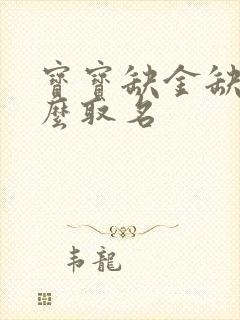 寶寶缺金缺
麼取名
韦龍